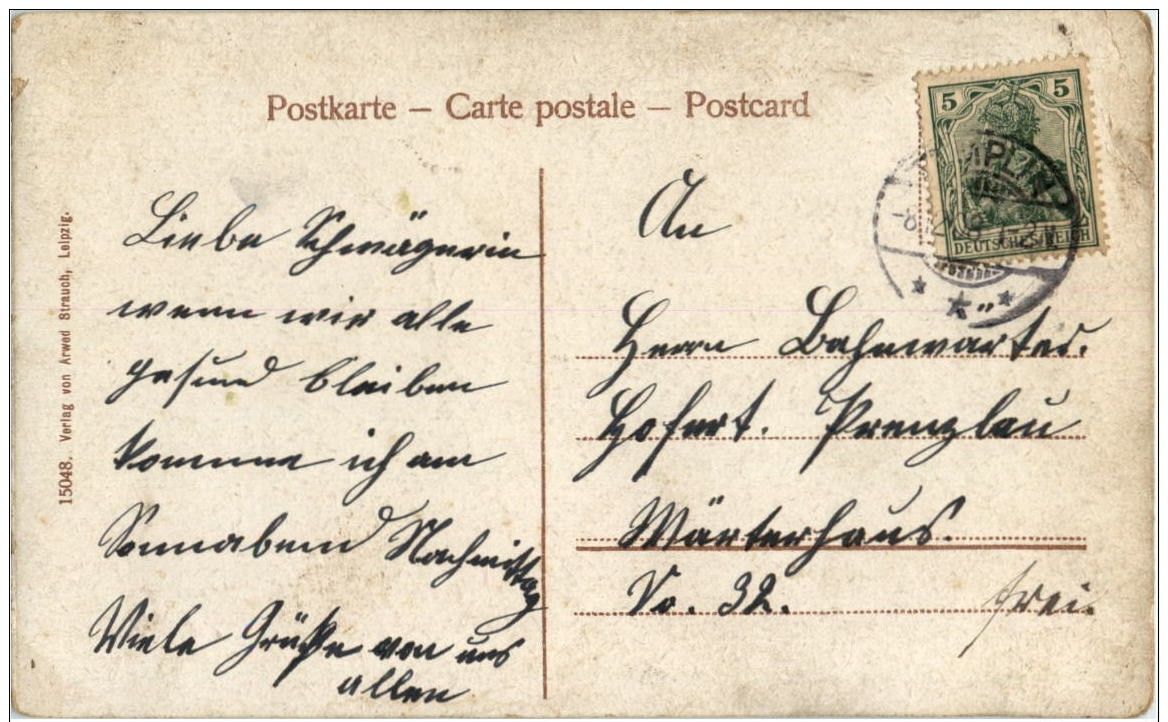 Postkarte – Carte postale – Postcard
15048. Verlag von Arwed Strauch, Leipzig.
5 5
DEUTSCHES REICH
TEMPLIN
Liebe Schwägerin
wenn wir alle
gesund bleiben
komme ich am
Sonnabend Nachmittag
Viele Grüße von uns
allen
An
Herrn Bahnwärter.
Hofert. Prenzlau
Wärterhaus.
No. 32.
frei.